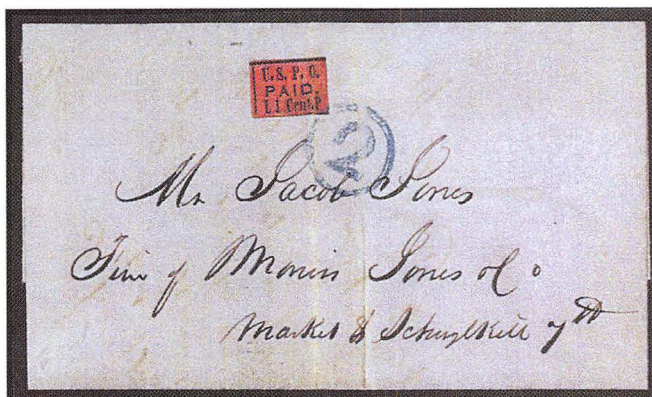 U.S.P.O.
PAID.
L 1 Cent. P
Mr Jacob Jones
Firm of Morris Jones & Co
Market & Schuylkill 7th